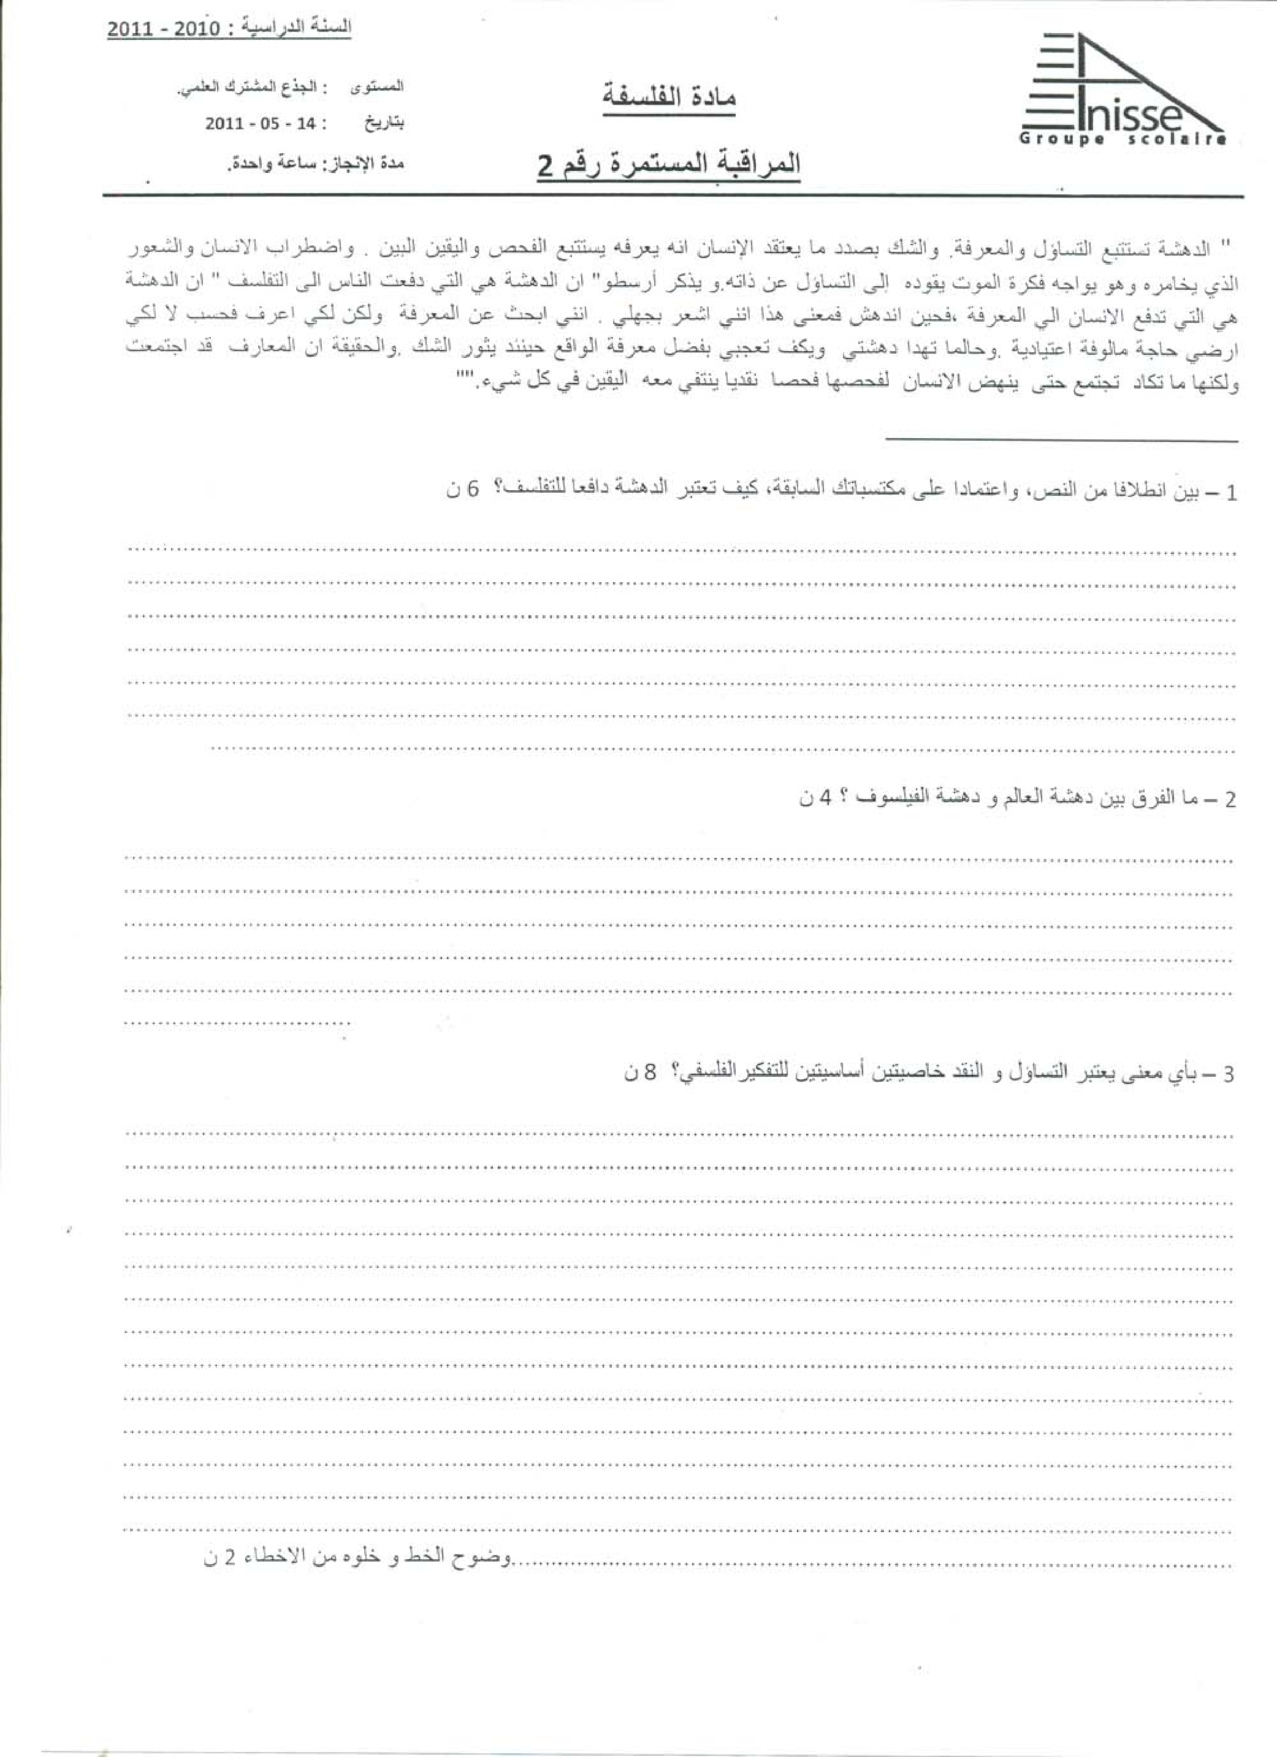 السنة الدراسية : 2010 - 2011
Enisse
Groupe scolaire
مادة الفلسفة
المراقبة المستمرة رقم 2
المستوى : الجذع المشترك العلمي.
بتاريخ : 14 - 05 - 2011
مدة الإنجاز: ساعة واحدة.
" الدهشة تستتبع التساؤل والمعرفة. والشك بصدد ما يعتقد الإنسان انه يعرفه يستتبع الفحص واليقين البين . واضطراب الانسان والشعور
الذي يخامره وهو يواجه فكرة الموت يقوده إلى التساؤل عن ذاته.و يذكر أرسطو" ان الدهشة هي التي دفعت الناس الى التفلسف " ان الدهشة
هي التي تدفع الانسان الي المعرفة ،فحين اندهش فمعنى هذا انني اشعر بجهلي . انني ابحث عن المعرفة ولكن لكي اعرف فحسب لا لكي
ارضي حاجة مالوفة اعتيادية .وحالما تهدا دهشتي ويكف تعجبي بفضل معرفة الواقع حينئذ يثور الشك .والحقيقة ان المعارف قد اجتمعت
ولكنها ما تكاد تجتمع حتى ينهض الانسان لفحصها فحصا نقديا ينتفي معه اليقين في كل شيء.""
1 – بين انطلاقا من النص، واعتمادا على مكتسباتك السابقة، كيف تعتبر الدهشة دافعا للتفلسف؟ 6 ن
2 – ما الفرق بين دهشة العالم و دهشة الفيلسوف ؟ 4 ن
3 – بأي معنى يعتبر التساؤل و النقد خاصيتين أساسيتين للتفكير الفلسفي؟ 8 ن
وضوح الخط و خلوه من الاخطاء 2 ن